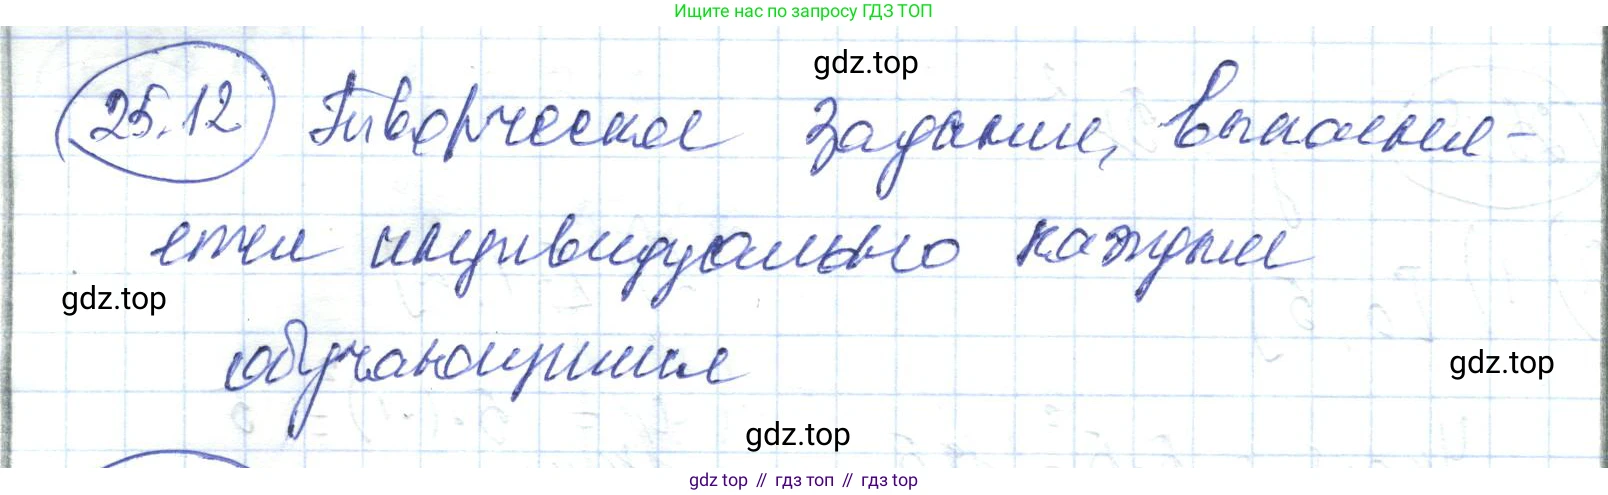 Ищите нас по запросу ГДЗ ТОП
gdz.top
25.12 Творческое задание, выполня-
ется индивидуально каждым
gdz.top
обучающимся
gdz.top
gdz.top
gdz top // гдз топ // гдз top